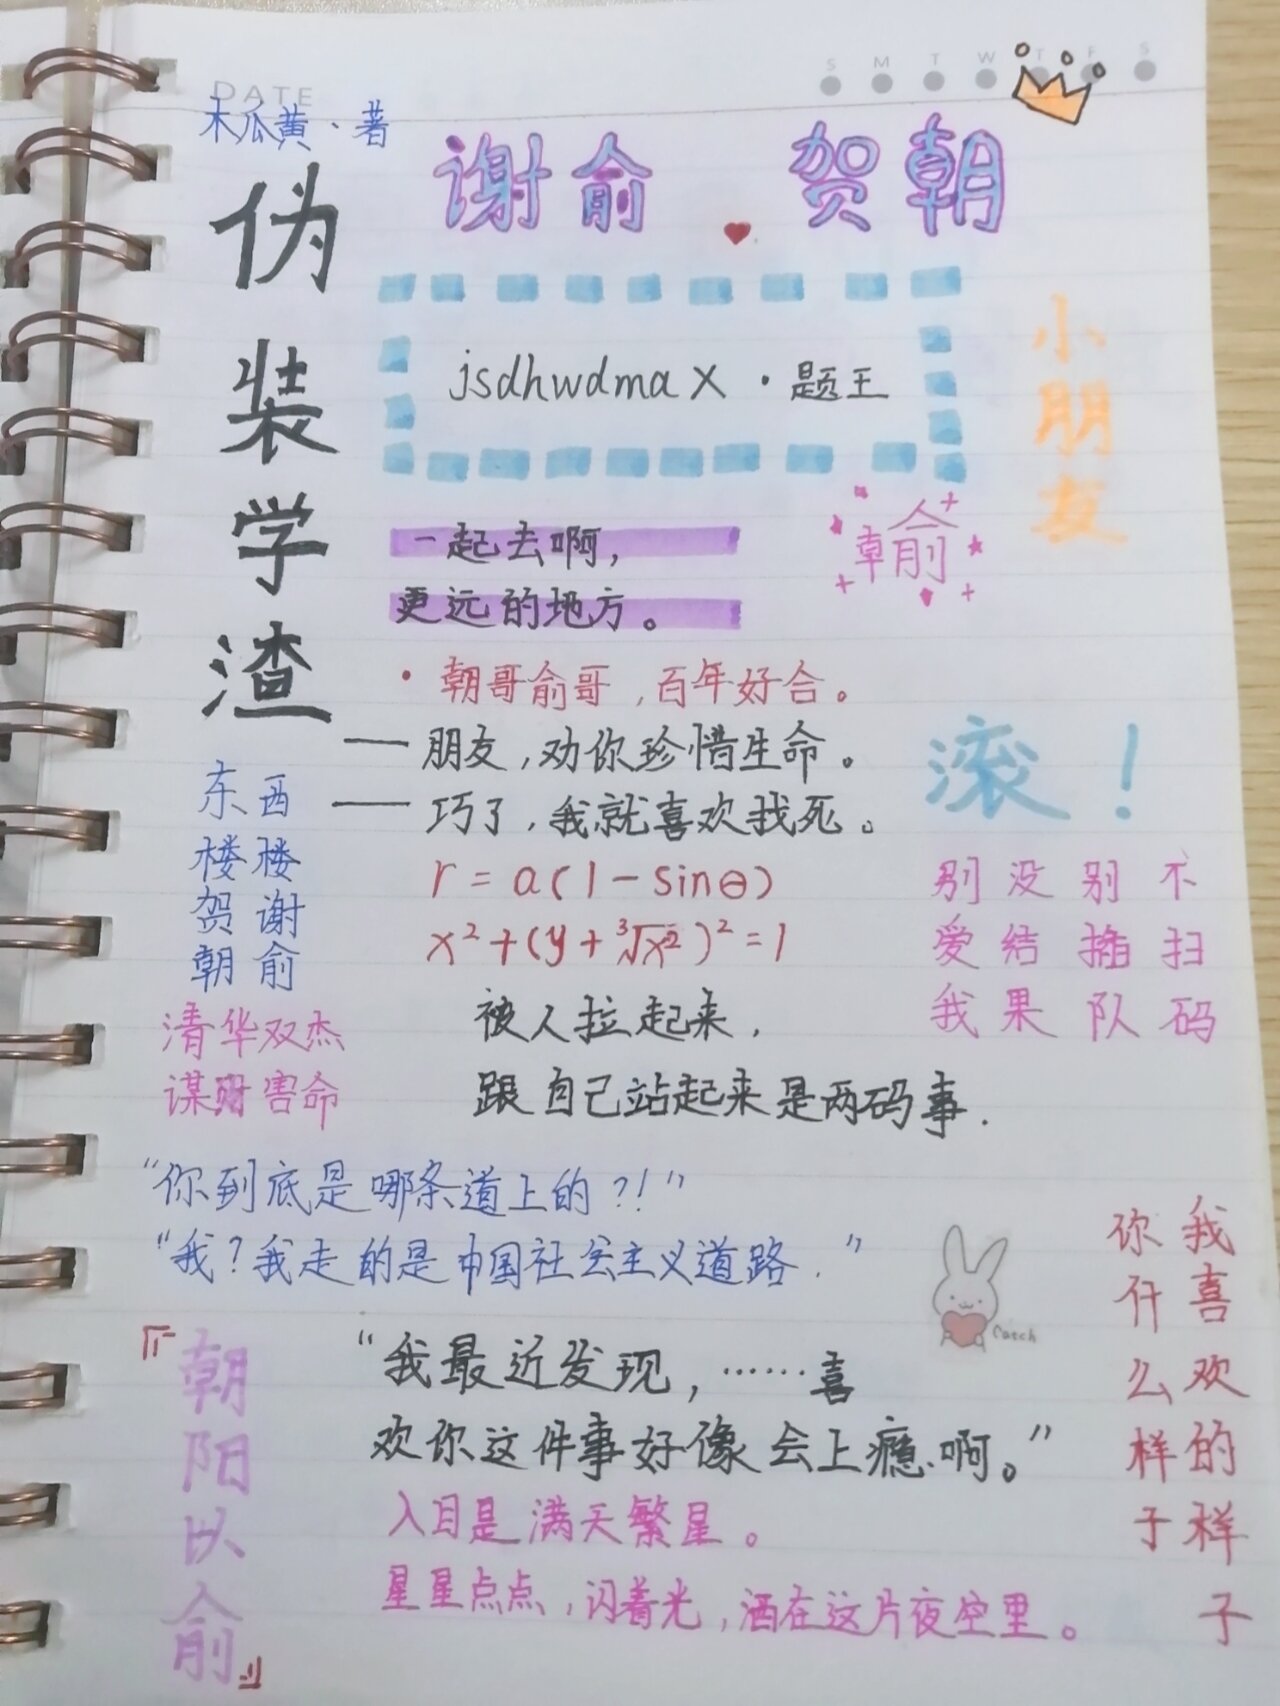 DATE
S M T W T F S
木瓜黄·著
伪装学渣
谢俞 贺朝
jsdhwdmaX·题王
小朋友
一起去啊,
更远的地方。
朝俞
·朝哥俞哥,百年好合。
——朋友,劝你珍惜生命。
——巧了,我就喜欢找死。
滚!
东楼贺朝
西楼谢俞
r=a(1-sinθ)
x²+(y+³√x²)²=1
别爱我
没结果
别插队
不扫码
清华双杰
谋财害命
被人拉起来,
跟自己站起来是两码事.
“你到底是哪条道上的?!”
“我?我走的是中国社会主义道路.”
Catch
我喜欢的样子
你什么样子
『朝阳以俞』
“我最近发现,……喜
欢你这件事好像会上瘾啊。”
入目是满天繁星。
星星点点,闪着光,洒在这片夜空里。